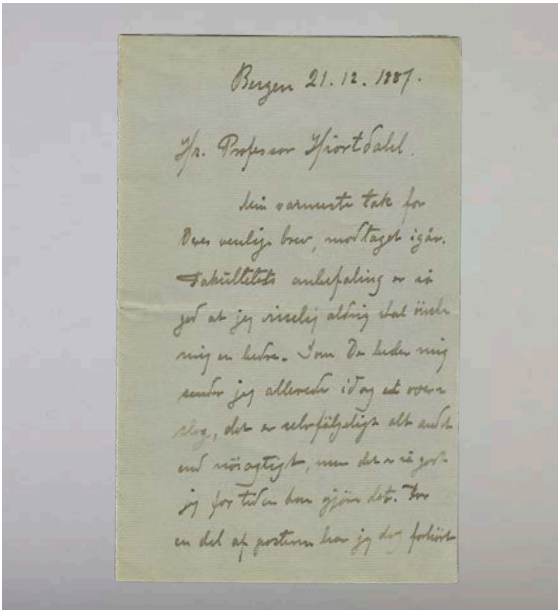 Bergen 21.12.1887.
Hr. Professor Hiortdahl.
Min varmeste tak for
Deres venlige brev, modtaget igår.
Fakultetets anbefaling er så
god at jeg visselig aldrig skal önske
mig en bedre. Som De beder mig
sender jeg allerede idag et over=
slag, det er selvfølgeligt alt andet
end nöiagtigt, men det er så godt
jeg for tiden kan gjöre det. For
en del af posterne har jeg dog forhört